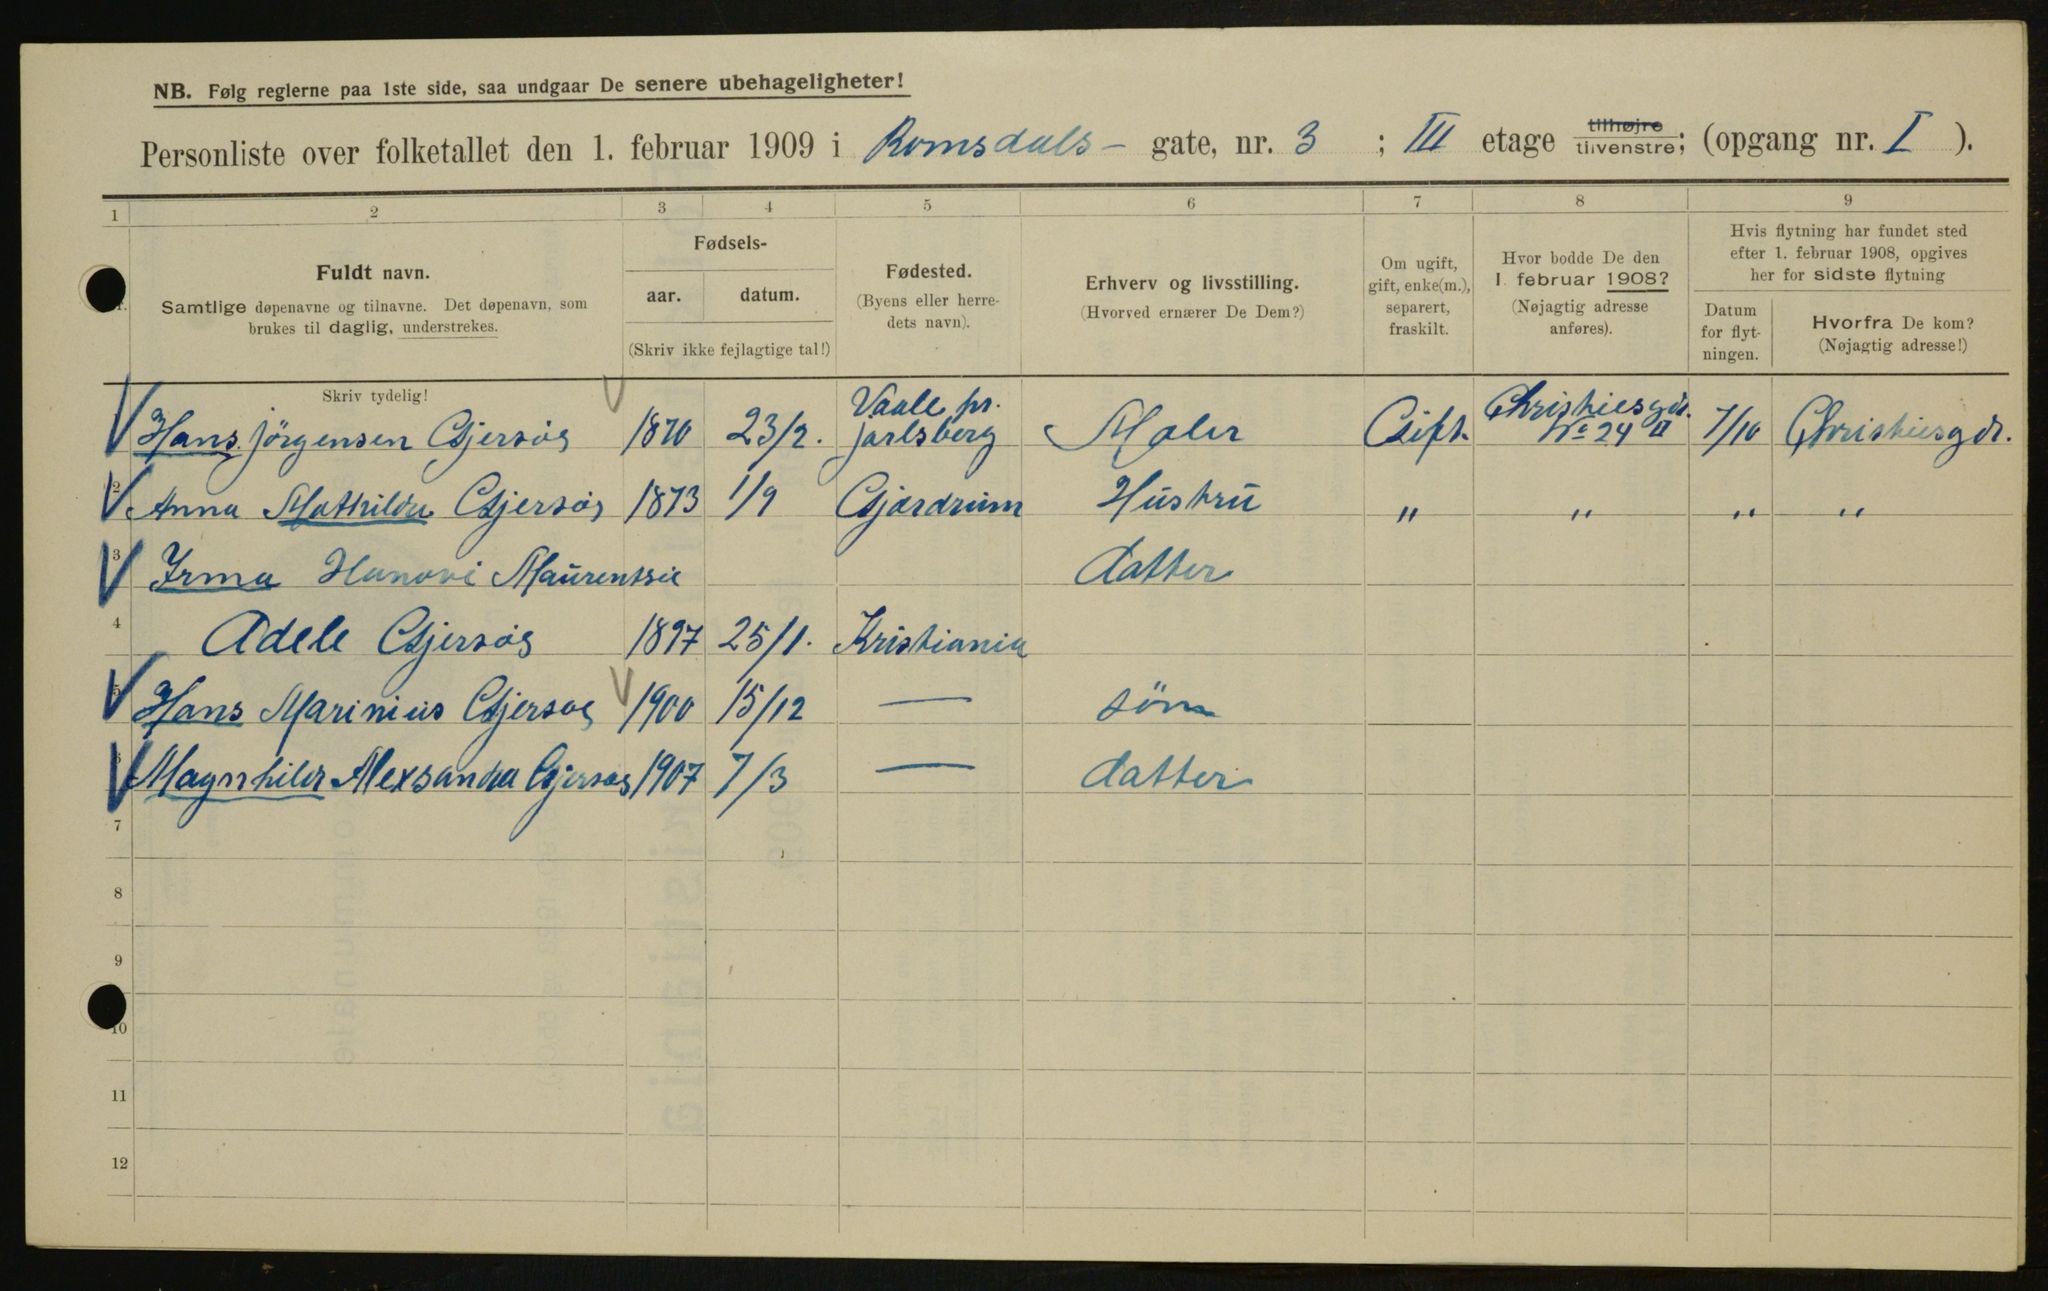 NB. Følg reglerne paa 1ste side, saa undgaar De senere ubehageligheter!
Personliste over folketallet den 1. februar 1909 i Romsdals- gate, nr. 3 ; III etage tilhøjre tilvenstre; (opgang nr. I ).
1 2 3 4 5 6 7 8 9
Fuldt navn.
Samtlige døpenavne og tilnavne. Det døpenavn, som
brukes til daglig, understrekes.
Fødsels-
aar. datum.
(Skriv ikke fejlagtige tal!)
Fødested.
(Byens eller herre-
dets navn).
Erhverv og livsstilling.
(Hvorved ernærer De Dem?)
Om ugift,
gift, enke(m.),
separert,
fraskilt.
Hvor bodde De den
1. februar 1908?
(Nøjagtig adresse
anføres).
Hvis flytning har fundet sted
efter 1. februar 1908, opgives
her for sidste flytning
Datum
for flyt-
ningen.
Hvorfra De kom?
(Nøjagtig adresse!)
Skriv tydelig!
1 Hans Jörgensen Gjersøs 1870 23/2. Vaale pr. Jarlsberg Maler Gift. Christiesgd. No 24 II 7/10 Christiesgdt.
2 Anna Mathilde Gjersøs 1873 1/9 Gjærdrum Hustru " " " "
3 Irma Hanovi Maurentsie datter
4 Adele Gjersøs 1897 25/1. Kristiania
5 Hans Marinius Gjersøs 1900 15/12 — sön
6 Magnhild Alexsandra Gjersøs 1907 7/3 — datter
7
8
9
10
11
12